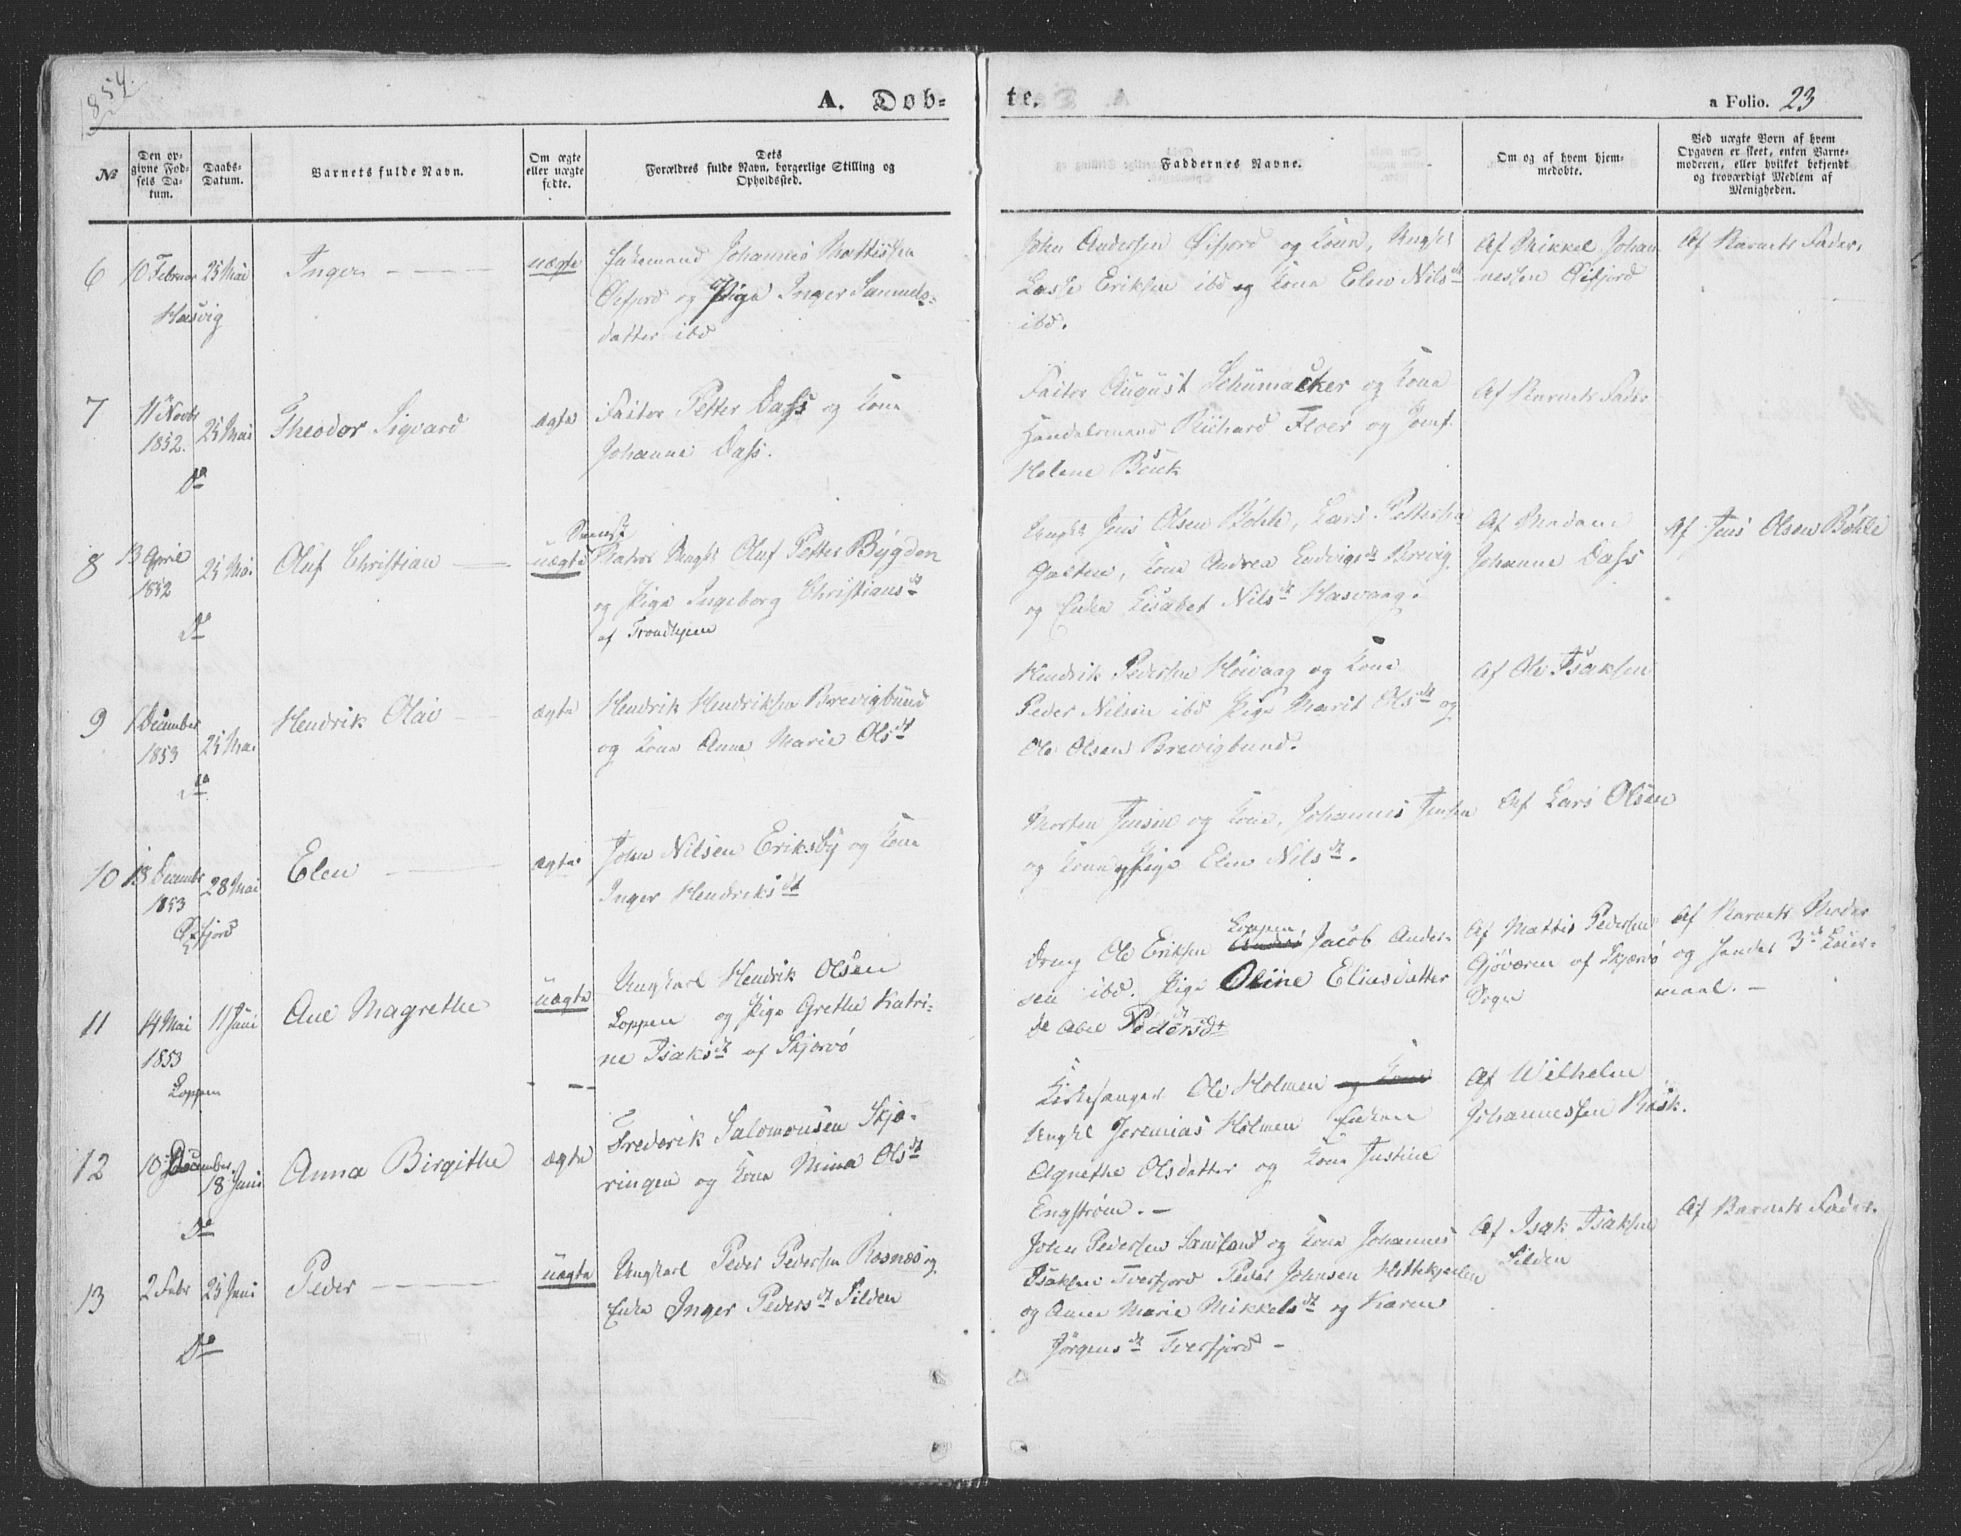 1854.
A. Døb-
te.
a Folio. 23
№
Den or-
givne Fød-
sels Da-
tum.
Daabs-
Datum.
Barnets fulde Navn.
Om ægte
eller uægte
fødte.
Dets
Forældres fulde Navn, borgerlige Stilling og
Opholdssted.
Faddernes Navne.
Om og af hvem hjem-
medøbte.
Ved uægte Børn af hvem
Opgaven er skeet, enten Barne-
moderen, eller hvilket bekjendt
og troværdigt Medlem af
Menigheden.
6
10 Februar
Hasvig
25 Mai
Inger
uægte
Enkemand Johannes Mathissen
Øxfjord og Pige Inger Samuels-
datter ibd
John Andersen Øxfjord og Kone, Ungkl
Lasse Eriksen ibd og Kone Elen Nilsdt
ibd.
Af Mikkel Johan
nessen Øxfjord
Af Barnets Fader,
7
11 Novbr
1852.
Do
25 Mai
Theodor Sigvard
ægte
Factor Petter Dass og Kone
Johanne Dass.
Factor August Schumacker og Kone
Handelsmand Richard Floer og Jomf.
Helene Buck
Af Barnets Fader
8
13 April
1852
Do
25 Mai
Oluf Christian
uægte
Svensk
Matros Ungkl Oluf Petter Bygden
og Pige Ingeborg Christiansdt
af Trondhjem
Ungkl Jens Olsen Bøhle, Lars Pettersen
Galten, Kone Andrea Ludvigsdt Brevig
og Enke Lisabet Nilsdt Hasvaag.
Af Madame
Johanne Dass
Af Jens Olsen Bøhle
9
1 December
1853
Do
25 Mai
Hendrik Olai
ægte
Hendrik Hendriksen Brevigbund
og Kone Anne Marie Olsdt
Hendrik Pedersen Høivaag og Kone
Peder Nilsen ibd Pige Marit Olsdt og
Ole Olsen Brevigbund.
Af Ole Isaksen
10
13 Decembr
1853
Øxfjord
28 Mai
Elen
ægte
John Nilsen Eriksby og Kone
Inger Hendriksdt
Morten Jensen og Kone, Johannes Jensen
og Kone og Pige Elen Nilsdt.
Af Lars Olsen
11
14 Mai
1853
Loppen
11 Juni
Ane Magrethe
uægte
Ungkarl Hendrik Olsen
Loppen og Pige Grethe Katri-
ne Isaksdt af Skjervø
Dreng Ole Eriksen Loppen Jacob Ander-
sen ibd. Pige Oline Eliasdatter
Do Abel Pedersdt
Af Mattis Pedersen
Gjøværen af Skjervø
Sogn
Af Barnets Moder
og hendes 3die Leier-
maal.
12
10 December
Do
18 Juni
Anna Birgithe
ægte
Frederik Salomonsen Skjæ-
ringen og Kone Mina Olsdt
Kirkesanger Ole Holmen og Kone
Ungkl Jeremias Holmen Enken
Agnethe Olsdatter og Kone Justine
Engstrøm.
Af Wilhelm
Johannessen Rask.
13
2 Febr
Do
25 Juni
Peder
uægte
Ungkarl Peder Pedersen Rosnæs og
Enke Inger Pedersdt Silden
John Pedersen Sandland og Kone Johannes
Isaksen Tverfjord Peder Johnsen
og Anne Marie Mikkelsdt og Karen
Jørgensdt Tverfjord
Af Isak Isaksen
Silden
Af Barnets Fader.